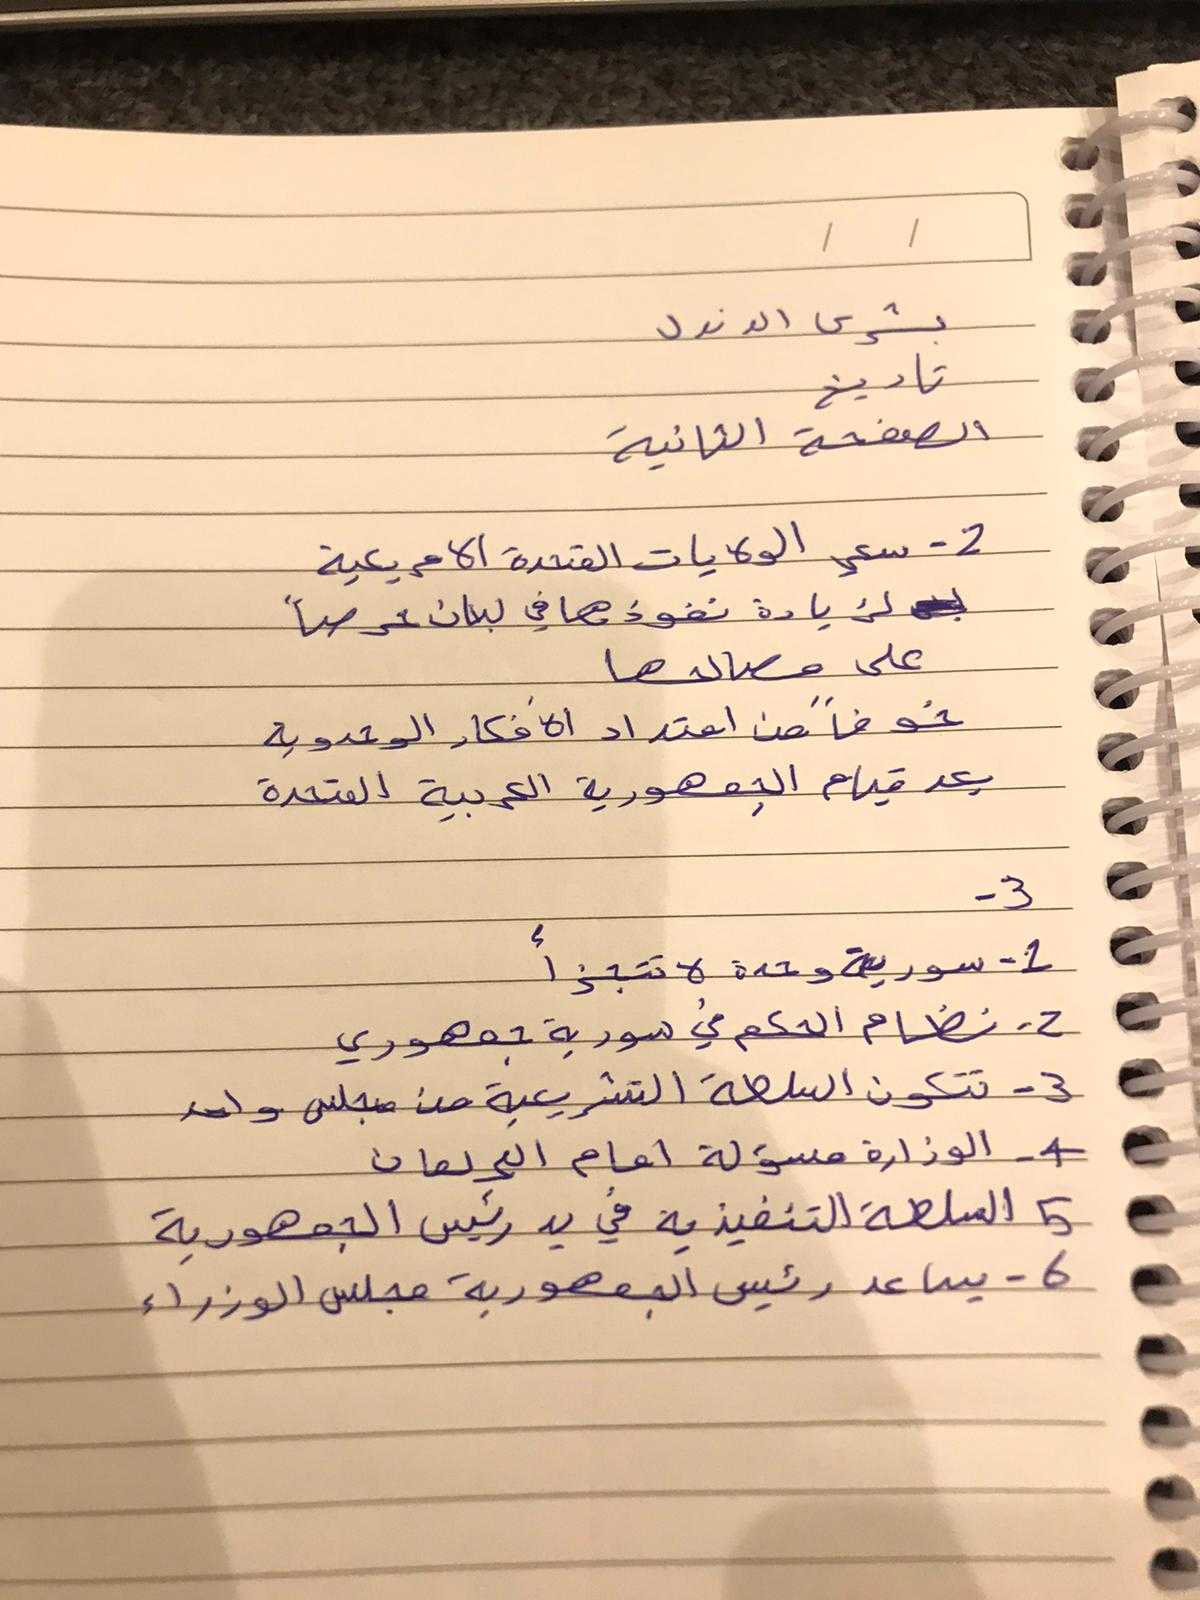 / /
بشرى الدندل
تاريخ
الصفحة الثانية
2- سعي الولايات المتحدة الامريكية
لزيادة نفوذها في لبنان حرصاً
على مصالحها
خوفاً من امتداد الأفكار الوحدوية
بعد قيام الجمهورية العربية المتحدة
3-
1- سورية وحدة لا تتجزأ
2- نظام الحكم في سورية جمهوري
3- تتكون السلطة التشريعية من مجلس واحد
4- الوزارة مسؤلة امام البرلمان
5 السلطة التنفيذية في يد رئيس الجمهورية
6- يساعد رئيس الجمهورية مجلس الوزراء